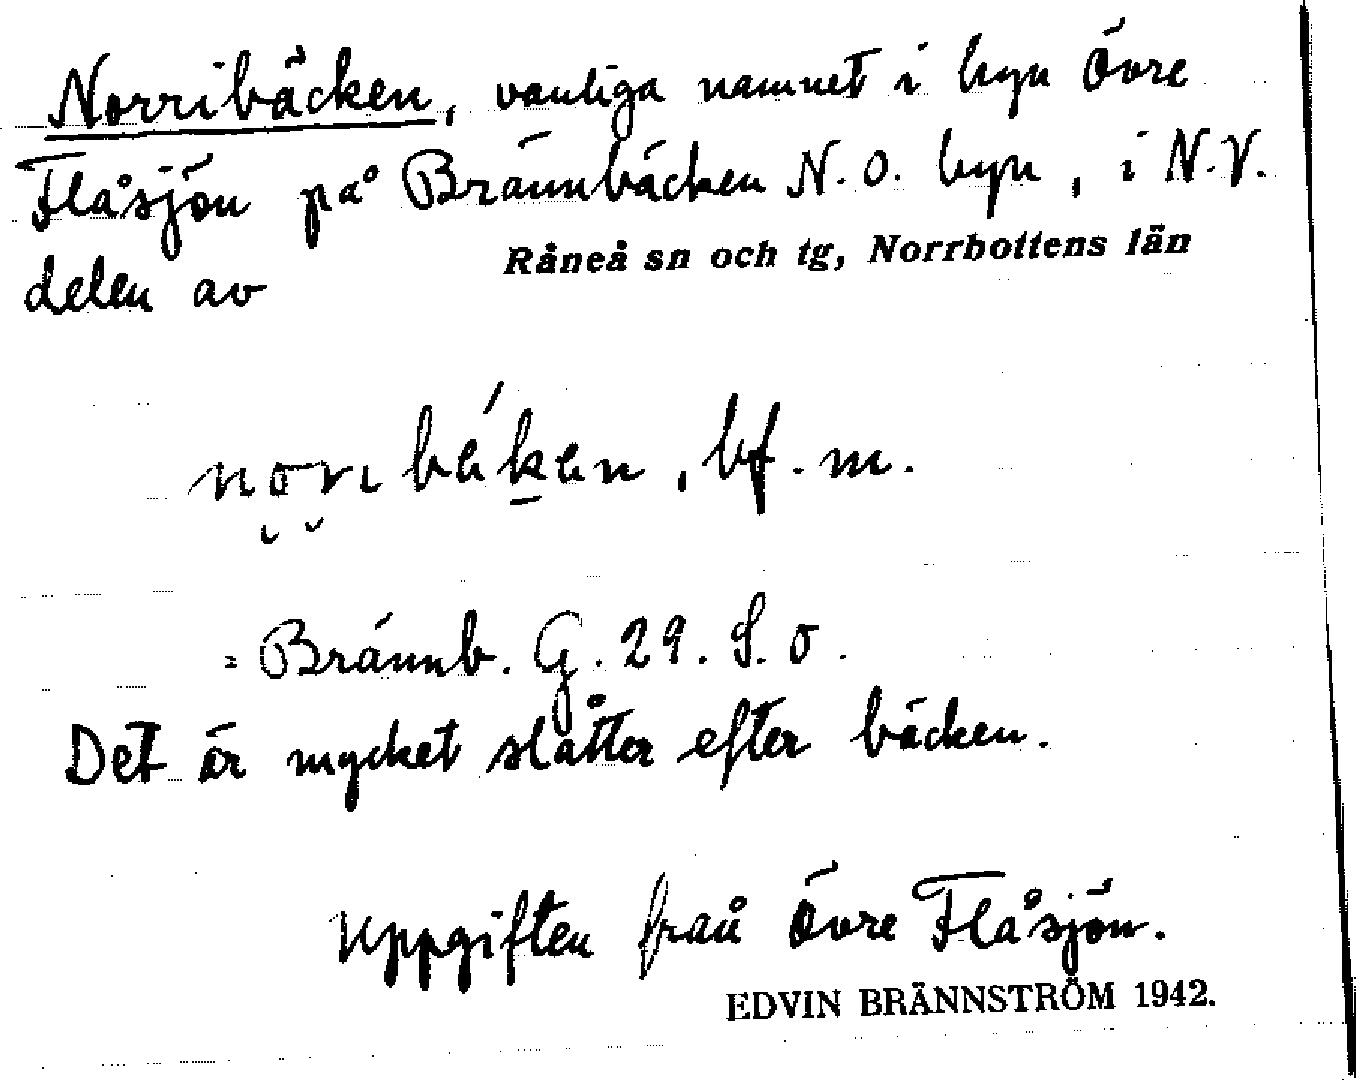 Norribäcken, vanliga namnet i byn Övre
Flåsjön på Brännbäcken N.O. byn, i N.V.
delen av
Råneå sn och tg, Norrbottens län
bf. m.
= Brännb. G. 29. S. O.
Det är mycket slåtter efter bäcken.
Uppgiften från Övre Flåsjön.
EDVIN BRÄNNSTRÖM 1942.